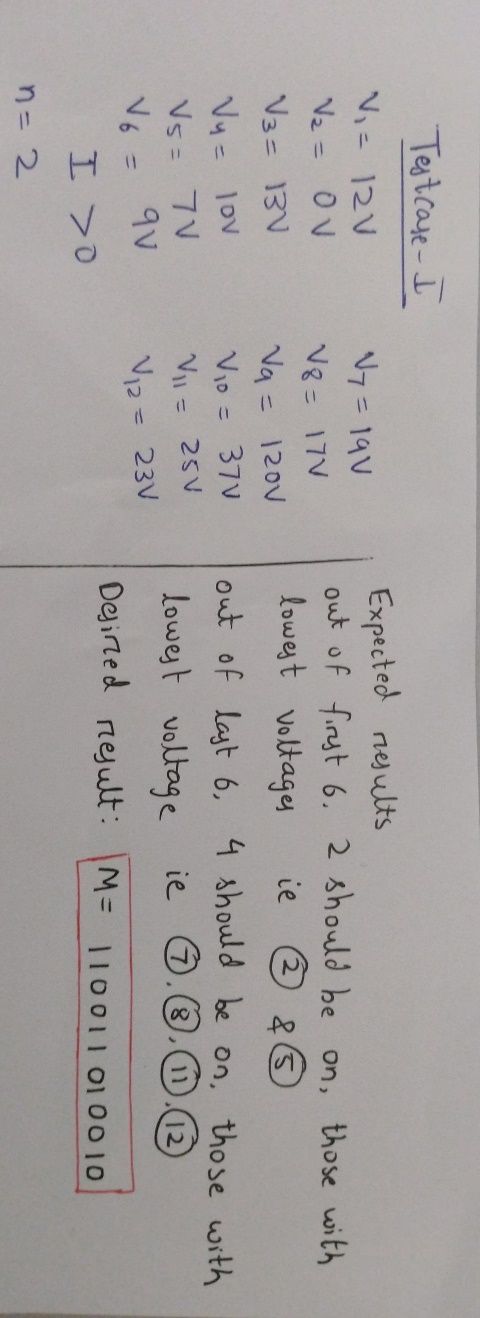 Testcase-I
V1 = 12V V7 = 19V
V2 = 0V V8 = 17V
V3 = 13V V9 = 120V
V4 = 10V V10 = 37V
V5 = 7V V11 = 25V
V6 = 9V V12 = 23V
I > 0
n = 2
Expected results
out of first 6, 2 should be on, those with
lowest voltages ie 2 & 5
out of last 6, 4 should be on, those with
lowest voltage ie 7, 8, 11, 12
Desired result: M= 110011010010